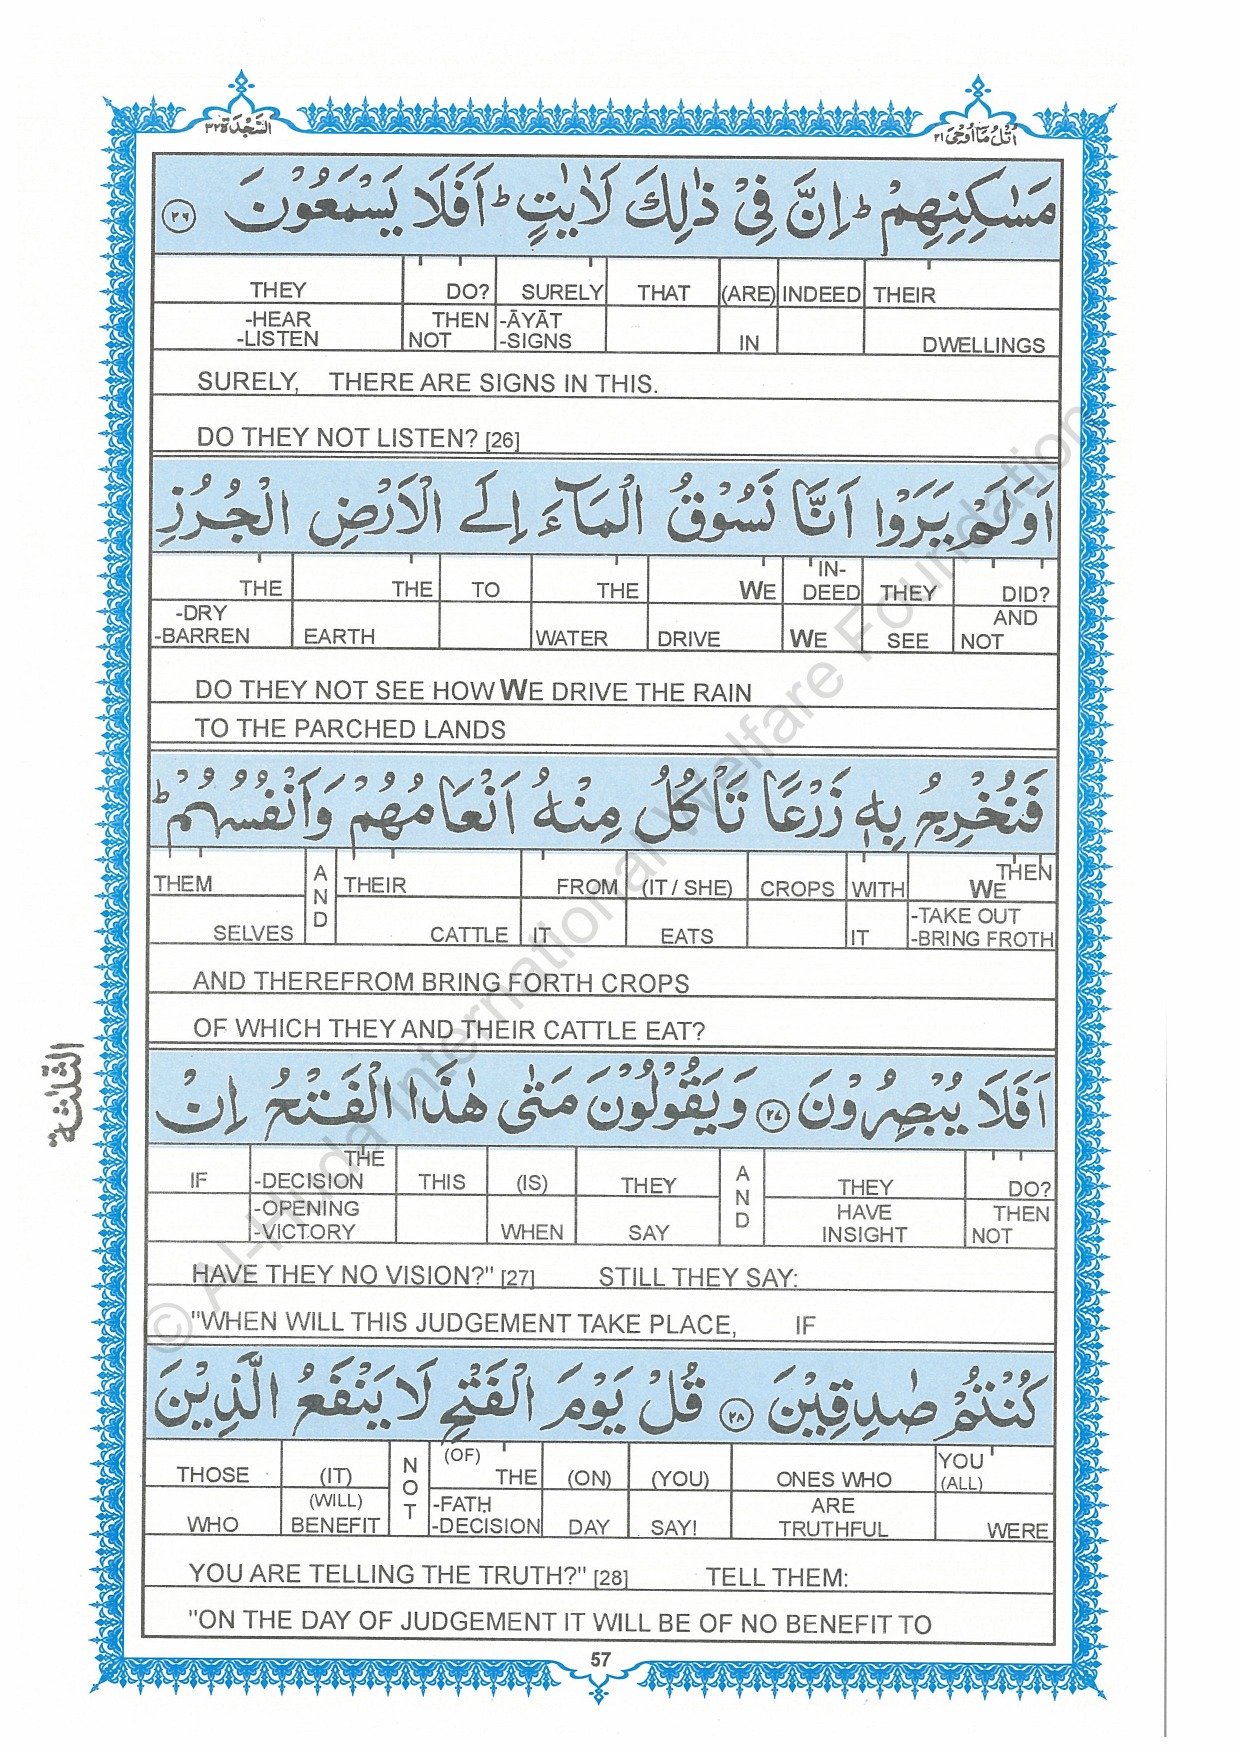 السَّجْدَة ٣٢
اُتْلُ مَا اُوْحِیَ ٢١
مَسٰكِنِهِمْ ؕ اِنَّ فِیْ ذٰلِكَ لَاٰیٰتٍ ؕ اَفَلَا یَسْمَعُوْنَ ٢٦
THEY DO? SURELY THAT (ARE) INDEED THEIR
-HEAR THEN -ĀYĀT
-LISTEN NOT -SIGNS IN DWELLINGS
SURELY, THERE ARE SIGNS IN THIS.
DO THEY NOT LISTEN? [26]
اَوَلَمْ یَرَوْا اَنَّا نَسُوْقُ الْمَآءَ اِلَی الْاَرْضِ الْجُرُزِ
THE THE TO THE WE IN-DEED THEY DID?
-DRY AND
-BARREN EARTH WATER DRIVE WE SEE NOT
DO THEY NOT SEE HOW WE DRIVE THE RAIN
TO THE PARCHED LANDS
فَنُخْرِجُ بِهٖ زَرْعًا تَاْكُلُ مِنْهُ اَنْعَامُهُمْ وَاَنْفُسُهُمْ ؕ
THEM AND THEIR FROM (IT / SHE) CROPS WITH THEN WE
-TAKE OUT
SELVES CATTLE IT EATS IT -BRING FROTH
AND THEREFROM BRING FORTH CROPS
OF WHICH THEY AND THEIR CATTLE EAT?
الثلثة
اَفَلَا یُبْصِرُوْنَ ٢٧ وَیَقُوْلُوْنَ مَتٰی هٰذَا الْفَتْحُ اِنْ
THE
IF -DECISION THIS (IS) THEY AND THEY DO?
-OPENING HAVE THEN
-VICTORY WHEN SAY INSIGHT NOT
HAVE THEY NO VISION?" [27] STILL THEY SAY:
"WHEN WILL THIS JUDGEMENT TAKE PLACE, IF
كُنْتُمْ صٰدِقِیْنَ ٢٨ قُلْ یَوْمَ الْفَتْحِ لَا یَنْفَعُ الَّذِیْنَ
(OF) YOU
THOSE (IT) NOT THE (ON) (YOU) ONES WHO (ALL)
(WILL) -FATḤ ARE
WHO BENEFIT -DECISION DAY SAY! TRUTHFUL WERE
YOU ARE TELLING THE TRUTH?" [28] TELL THEM:
"ON THE DAY OF JUDGEMENT IT WILL BE OF NO BENEFIT TO
57
© Al-Huda International Welfare Foundation